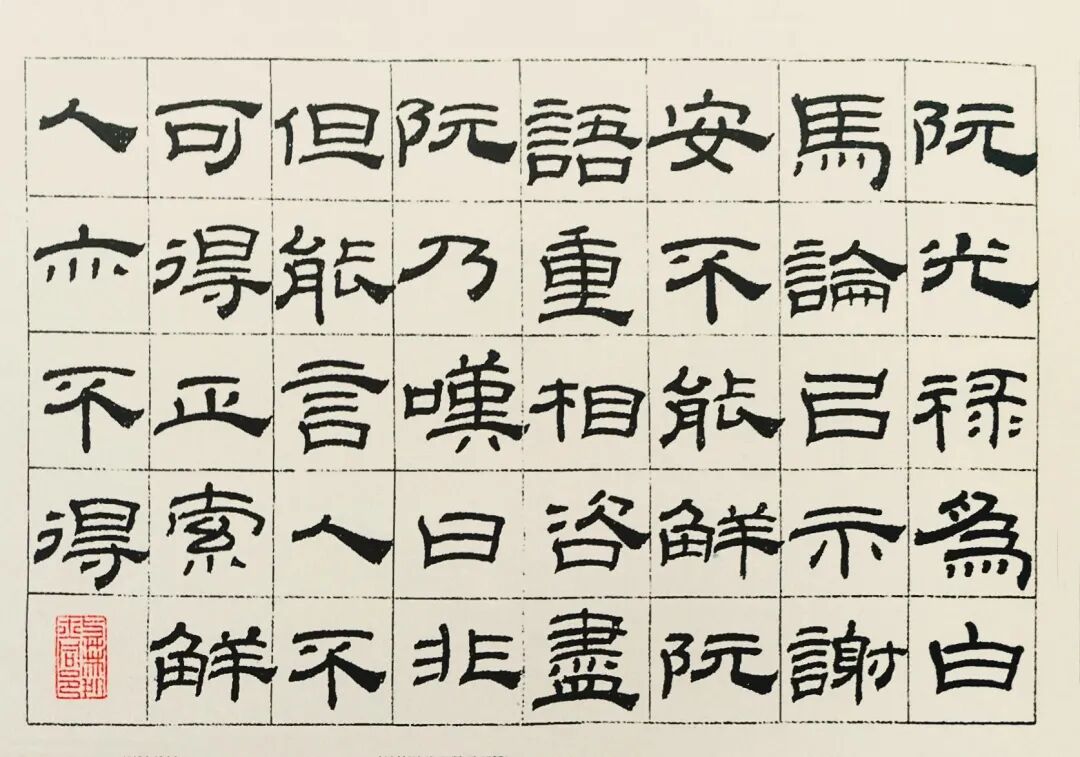 阮光祿爲白
馬論㠯示謝
安不能觧阮
語重相咨盡
阮乃嘆曰非
但能言人不
可得正索觧
人亦不得